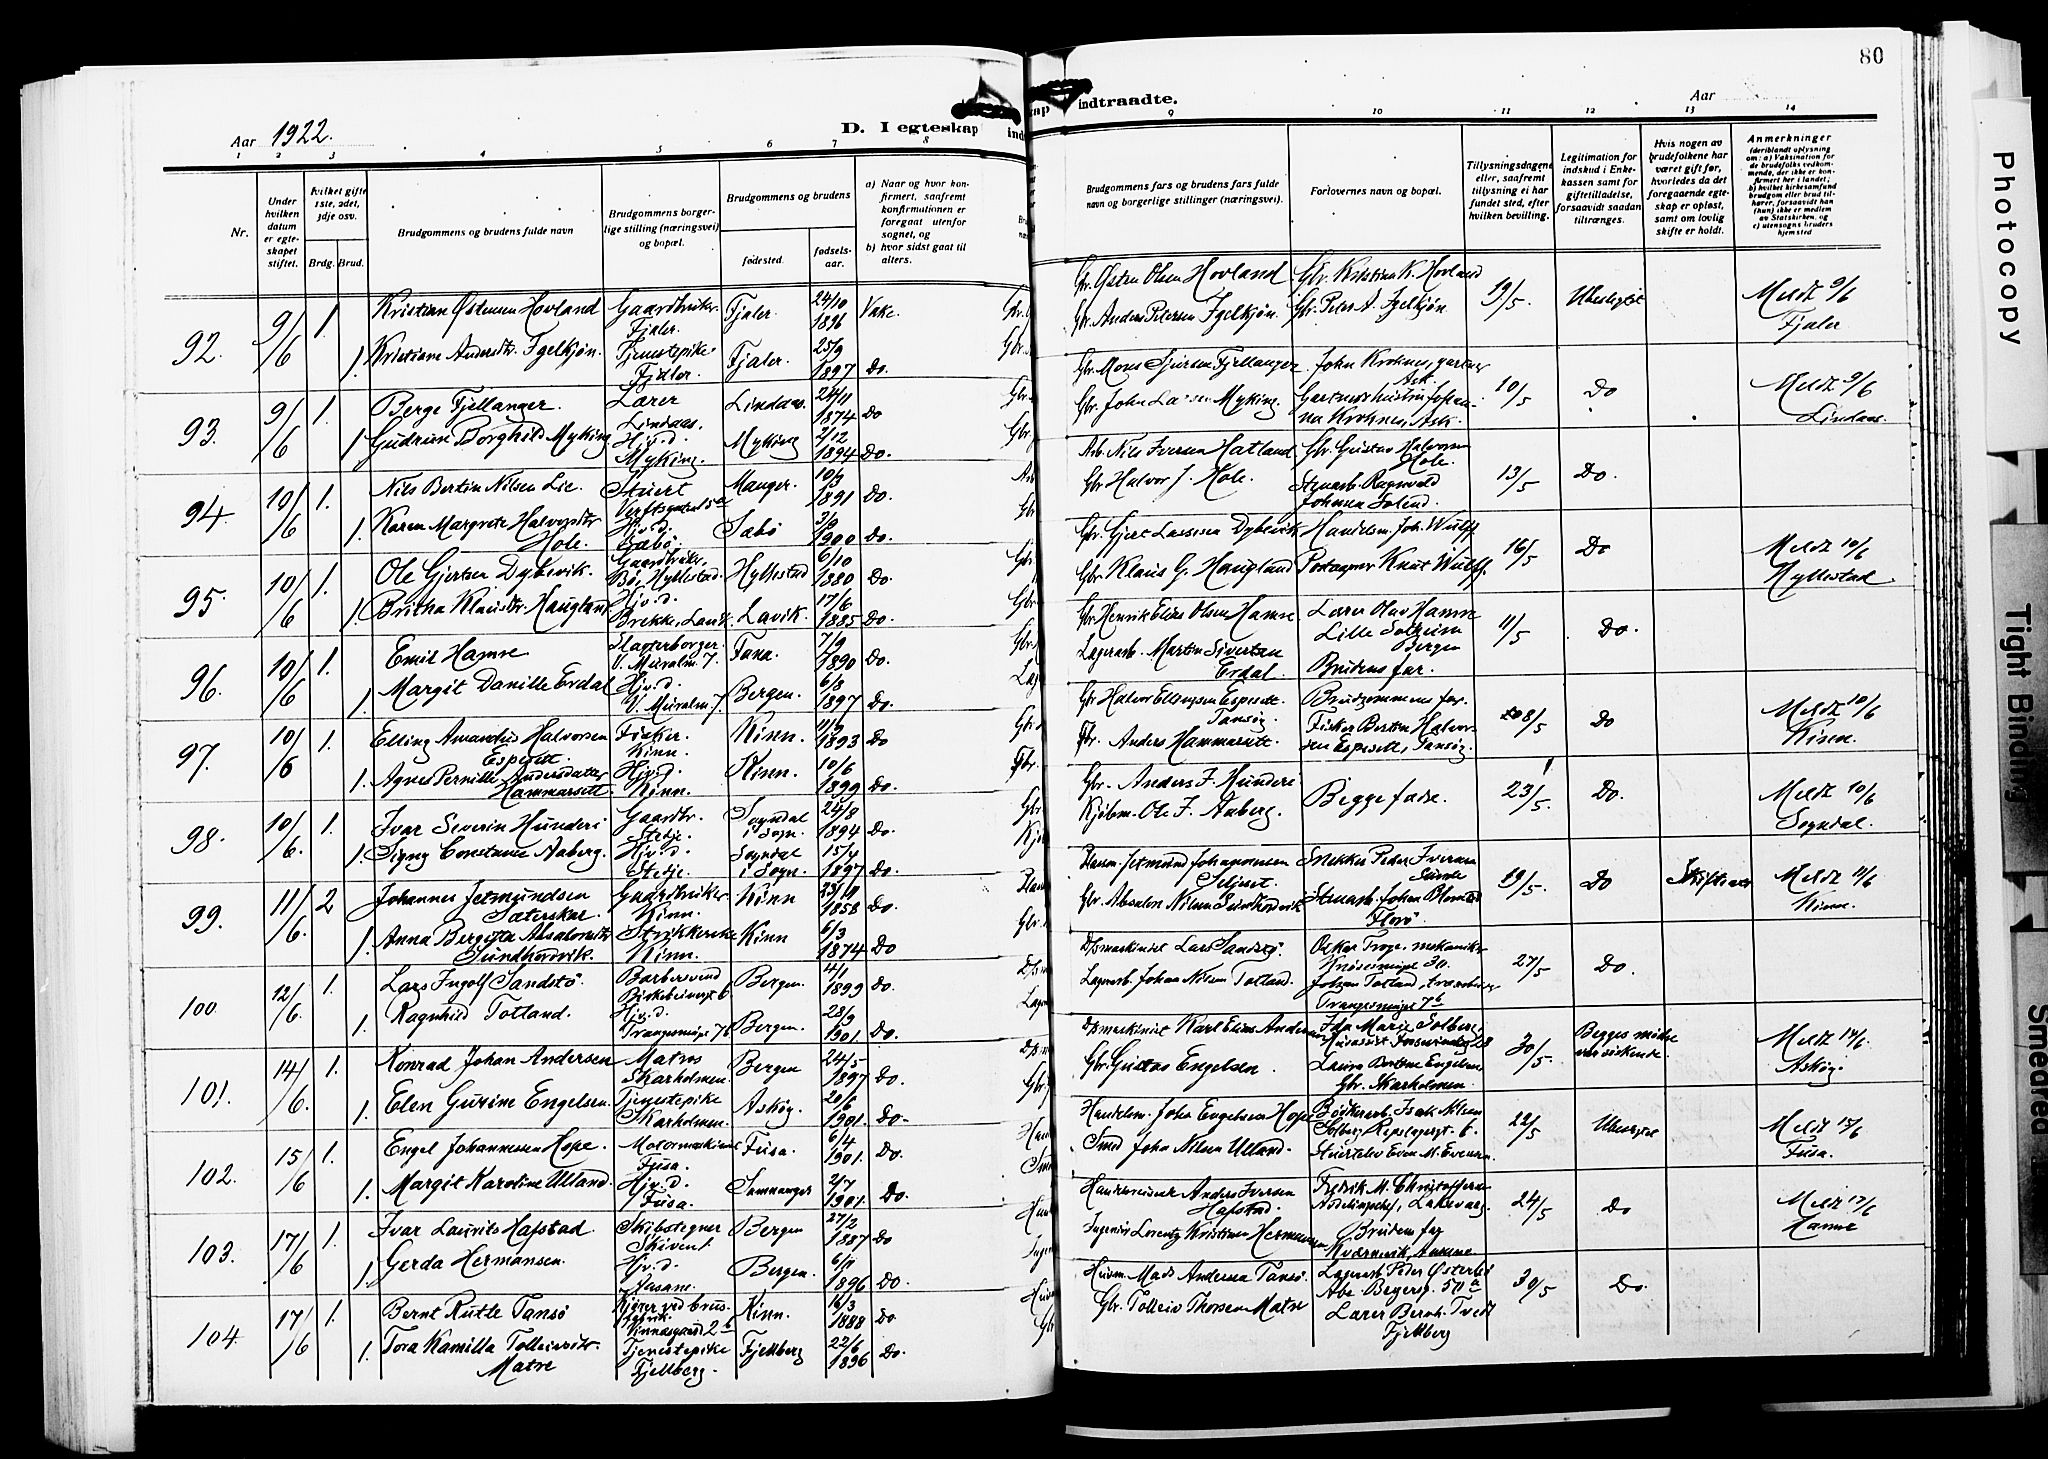 80
Aar 1922.
D. I egteskap
indtraadte.
Aar
1 2 3 4 5 6 7 8
9 10 11 12 13 14
Nr.
Under hvilken datum er egteskapet stiftet.
Hvilket gifte 1ste, 2det, 3dje osv.
Brdg. Brud.
Brudgommens og brudens fulde navn
Brudgommens borgerlige stilling (næringsvei) og bopæl.
Brudgommens og brudens
fødested.
fødselsaar.
a) Naar og hvor konfirmert, saafremt konfirmationen er foregaat utenfor sognet, og
b) hvor sidst gaat til alters.
Brudgommens fars og brudens fars fulde navn og borgerlige stillinger (næringsvei).
Forlovernes navn og bopæl.
Tillysningsdagene eller, saafremt tillysning ei har fundet sted, efter hvilken bevilling.
Legitimation for indskud i Enkekassen samt for giftetilladelse, forsaavidt saadan tiltrænges.
Hvis nogen av brudefolkene har været gift før, hvorledes da det foregaaende egteskap er opløst, samt om lovlig skifte er holdt.
Anmerkninger
(deriblandt oplysning om: a) Vaksination for de brudefolks vedkommende, der ikke er konfirmert her i landet; b) hvilket kirkesamfund brudgom eller brud tilhører, forsaavidt han (hun) ikke er medlem av Statskirken, og c) utensogns bruders hjemsted
92. 9/6 1. Kristian Østensen Hovland Gaardbruker Fjaler. Fjaler. 24/10 1896 Vake.
1. Kristiane Andersdtr. Fjelkjøn. Tjenestepike Fjaler. Fjaler. 25/9 1897 Do.
Gbr. Østen Olsen Hovland Gbr. Kristian K. Hovland 19/5 Ubesluttet Meldt 9/6 Fjaler
Gbr. Anders Petersen
93. 9/6 1. Berge Fjellanger. Lærer Lindaas. Lindaas. 24/11 1874 Do
1 Gudrun Borghild Myking Hjv.d. Myking. Myking 2/12 1894 Do.
Gbr. Mons Sjursen Fjellanger John Kroknes, gartner Ask. 10/5 Do Meldt 9/6 Lindaas.
Gbr. John Larsen Myking. Kroknes, Ask.
94. 10/6 1. Nils Bertin Nilsen Lie Stuert Manger. 10/3 1891 Do.
1. Karen Margrete Halvorsdtr Hole. Hjv.d. Sæbø. Sæbø 3/9 1900 Do.
Arb. Nils Iversen Hatland Gbr. Gustav Halvorsen Hole. 13/5 Do.
Gbr Halvor J. Hole. Stenarb. Ragnvald Johnsen
95. 10/6 1. Ole Gjertsen Dybevik. Gaardbruker, Bø, Hyllestad. Hyllestad 6/10 1880 Do.
1. Britha Klausdtr. Haugland Hjv.d. Brekke, Lavik. Lavik. 17/6 1885 Do.
Gbr. Gjert Lassesen Dybevik Handelsm. Joh. Wulff 16/5 Do Meldt 10/6 Hyllestad
Gbr. Klaus G. Haugland Knut Wulff.
96. 10/6 1. Emil Hamre Slagterborger V. Muralm. 7. Fana. 7/9 1890 Do.
1. Margit Danille Erdal Hjv.d. V. Muralm. 7. Bergen. 6/8 1897 Do.
Gbr. Henrik Elias Olsen Hamre Lærer Olav Hamre Lille Solheim Bergen 11/5 Do.
Lagerarb. Martin Sivertsen Erdal. Brudens far.
97. 10/6 1. Elling Amandus Halvorsen Espesett. Fisker. Kinn. Kinn. 11/9 1893 Do
1. Agnes Pernille Andersdatter Hammarsett Hjv.d. Kinn. Kinn. 10/6 1899 Do.
Gbr Halvor Ellingsen Espesett Tansøy. Brudgommens far. 28/5 Do Meldt 10/6 Kinn.
Gbr. Anders Hammarsett. Fisker Bertin Halvorsen Espesett, Tansøy.
98. 10/6. 1. Ivar Severin Hunderi Gaardbr. Stedje. Sogndal i Sogn. 24/8 1894 Do.
1. Signy Constanse Aaberg. Hjv.d. Stedje. Sogndal i Sogn. 15/4 1897 Do.
Gbr. Anders J. Hunderi Begge fædre. 23/5. Do. Meldt 10/6 Sogndal.
Kjøbm. Ole J. Aaberg.
99. 11/6. 2 Johannes Jetmundsen Sæterskar. Gaardbruker Kinn. Kinn 23/11 1858 Do.
1. Anna Bergitta Absalonsdtr Sundhordvik. Strikkerske Kinn. Kinn 6/3 1874 Do
Jetmund Johannesen Seljeset. Snekker Peder Iversen Sunde 19/5. Do Skiftevæs Meldt 11/6 Kinn.
Gbr. Absalon Nilsen Sundhordvik Stenarb. Johan Florø
100. 12/6. 1. Lars Ingolf Sandstø. Barbersvend Birkebeinergt 6 Bergen. 4/1 1899 Do.
1. Ragnhild Totland. Hjv.d. Trangesmuge 7b Bergen. 28/9 1901. Do.
D/Smaskinist Lars Sandstø. Oskar Troye, mekaniker Knøsesmuge 30. 27/5 Do.
Lagerarb. Johan Nilsen Totland. Johan Totland, Trangesmuge 7b
101. 14/6. 1. Konrad Johan Andersen Matros Skarholmen. Bergen 24/5 1897 Do.
1. Elen Gurine Engelsen. Tjenestepike Skarholmen. Askøy. 20/6 1901. Do.
D/Smaskinist Karl Elias Andersen Ida Marie Solberg 30/5. Begges mødre Meldt 14/6. Askøy.
Gbr. Gustav Engelsen. Laura Engelsen Gbr. Skarholmen.
102. 15/6 1. Engel Johannesen Hope. Motormaskinist Fusa. Fusa. 6/4 1901. Do.
1. Margit Karoline Ulland. Hjv.d. Fusa. Samnanger 2/7 1901. Do.
Handelsm. John Engelsen Hope Bødkerarb. Isak Nilsen Solberg Repslagergt. 6. 22/5 Ubesluttet Meldt 15/6 Fusa.
Smed John Nilsen Ulland. Stuertelev Even M. Evensen.
103. 17/6 1. Ivar Laurits Hafstad. Skibstegner Bergen 27/2 1887 Do
1 Gerda Hermansen. Hjv.d. Aasane. Bergen. 6/11 1896 Do.
Anders Iversen Hafstad. Fredrik M. Christoffersen Avdelingschef, Laksevaag. 24/5 Do Meldt 17/6 Hamre
Ingeniør Lorentz Kristian Hermansen Brudens far
104. 17/6 1. Bernt Rutle Tansø Kjører ved brusfabrik. Vinnesgaard 2b Kinn. 16/3 1888 Do
1. Tora Kamilla Tolleivsdtr. Matre Tjenestepike Fjellberg. Fjellberg 22/6 1896 Do.
Husm. Mads Andersen Tansø. Lagerarb. Peder Østerbø Abs. Beyersg. 50a 30/5 Do.
Gbr. Tolleiv Thorsen Matre Lærer Bernh. Tvedt Fjellberg
Photocopy
Tight Binding
Smeared